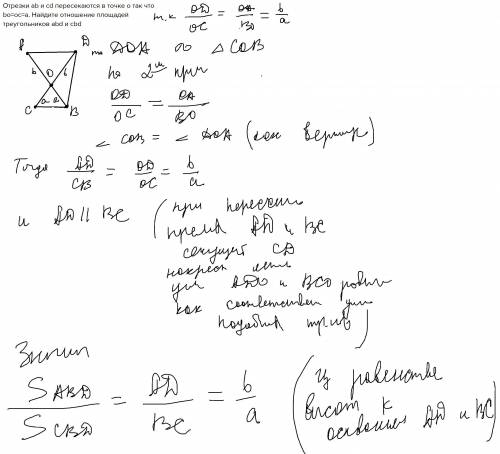 Отрезки ab и cd пересекаются в точке о так что
bo=oc=a. Найдите отношение площадей
треугольников abd и cbd
т.к OD/OC = OA/BO = b/a
A D
b b
O
a a
C B
то △AOD ∞ △COB
по 2м при
OD/OC = OA/BO
∠ COB = ∠ AOD (как вертик)
Тогда AD/CB = OD/OC = b/a
и AD || BC (при пересечен
прямых AD и BC
секущей CD
накрест леж
угл ADO и BCO равны
как соответствен угл
подобия треуг)
Значит
S ABD / S CBD = AD/BC = b/a (из равенства
высот к
основания AD и BC)